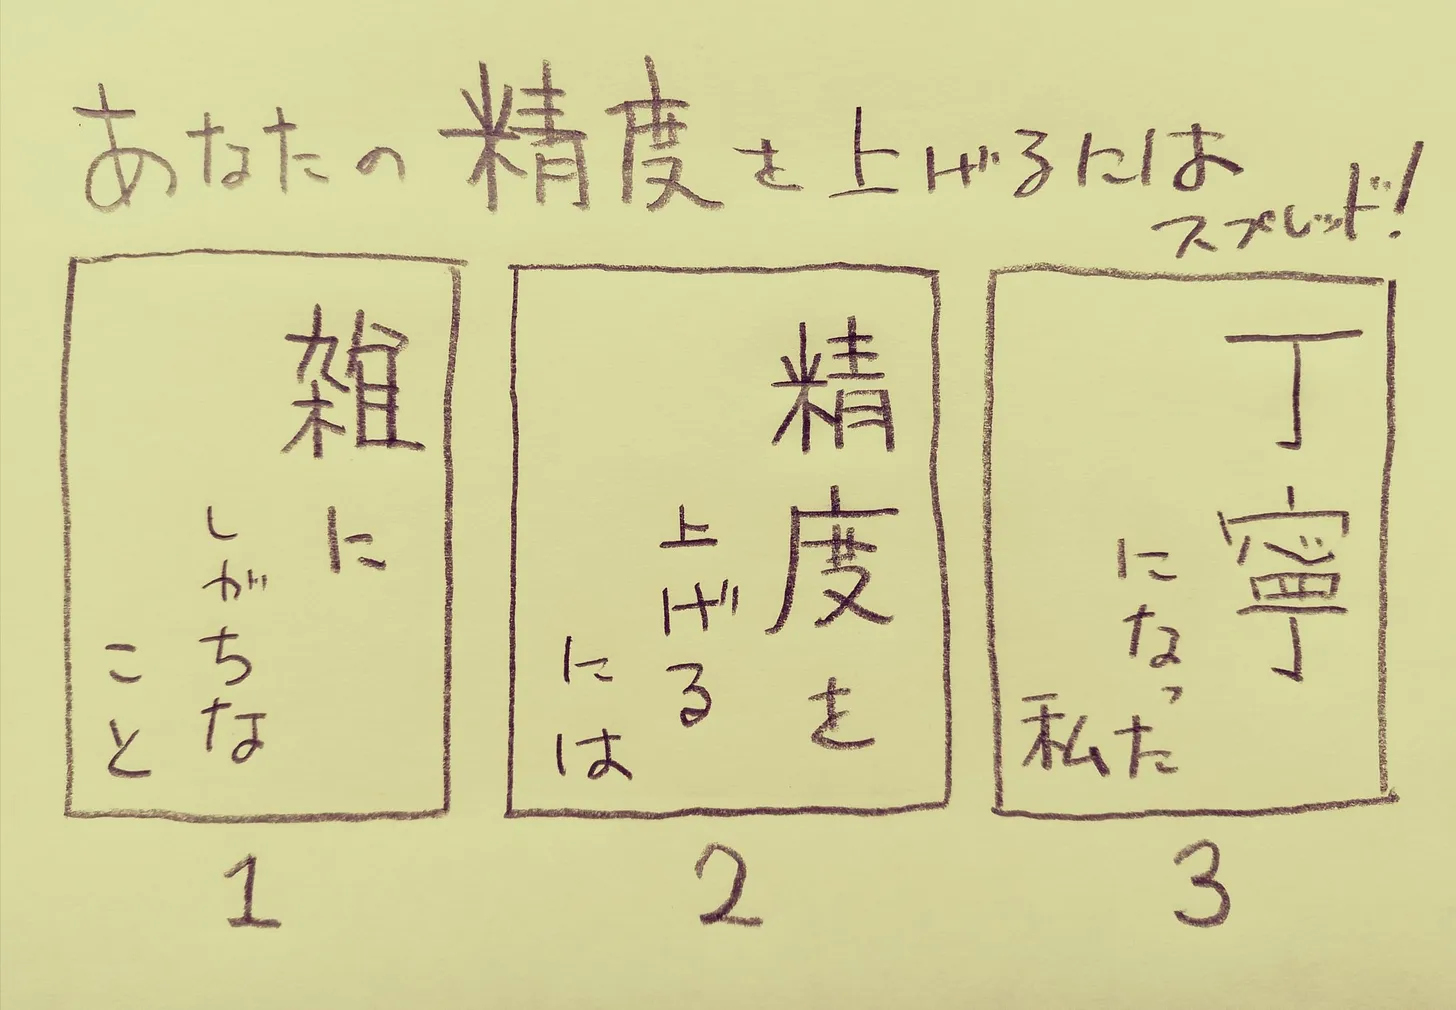 あなたの精度を上げるには
スプレッド!
雑に
しがちな
こと
1
精度を
上げる
には
2
丁寧
になった
私
3